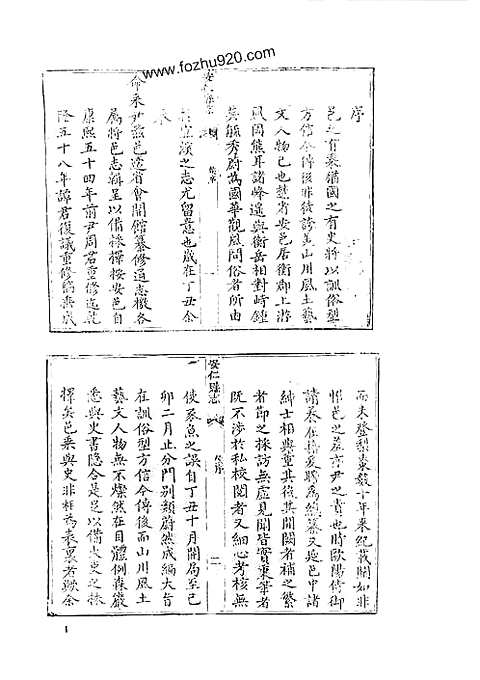 www.fozhu920.com
序
邑之有乘猶國之有史將以訓俗型
方信今傳後非徒誇美山川風土藝
文人物已也楚省安邑居衡郡上游
鳳岡熊耳諸峰遙與衡岳相對峙鍾
英毓秀蔚為國華觀風問俗者所由
之志尤留意也歲在丁丑余
承
命來尹茲邑適省會開館纂修通志檄各
屬將邑志輯呈以備採擇按安邑自
康熙五十四年前尹周君重修迄乾
隆五十八年譚君復議重修稿未成
安仁縣志
序
一
而未登梨棗數十年來紀載闕如非
惟邑之羞亦尹之責也時歐陽侍御
請泰在梓爰聘為總纂又延邑中諸
紳士相與董其役其間闕者補之繁
者節之採訪無虛見聞皆實秉筆者
既不涉於私校閱者又細心考核無
安仁縣志
序
二
使豕魚之誤自丁丑十月開局至己
卯二月止分門別類蔚然成編大旨
在訓俗型方信今傳後而山川風土
藝文人物無不燦然在目體例森嚴
悉與史書隱合是足以備史之採
擇矣邑乘與史非相為表裏者歟余
1